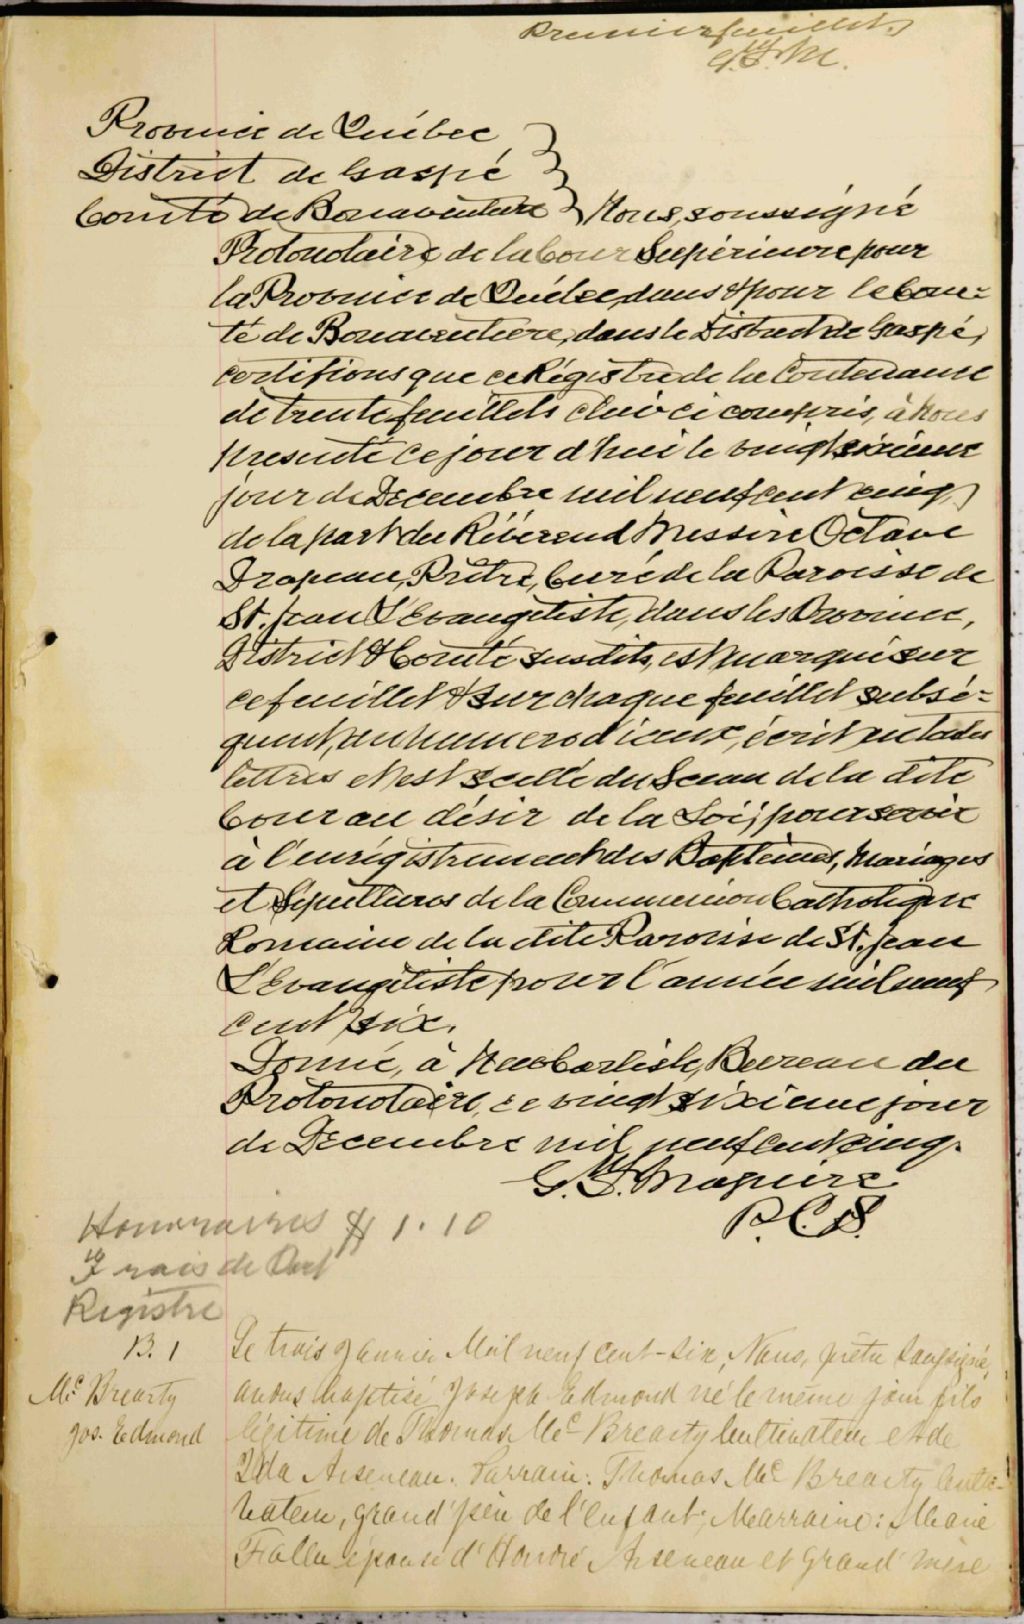 Premier feuillet
G.F.M.
Province de Québec
District de Gaspé
Comté de Bonaventure Nous, soussigné
Protonotaire de la Cour Supérieure pour
la Province de Québec, dans & pour le Com=
té de Bonaventure, dans le District de Gaspé,
certifions que ce Régistre de la Contenance
de trente feuillets celui ci compris, à nous
presenté ce jour d'hui le vingt sixieme
jour de Decembre mil neuf cent cinq,
de la part du Réverend Messire Octave
Drapeau, Prêtre, Curé de la Paroisse de
St. Jean L'Evangéliste, dans les Province,
District & Comté susdits, est marqué sur
ce feuillet & sur chaque feuillet subsé=
quent, du numero d'iceux, écrit en toutes
lettres et est scellé du Sceau de la dite
Cour au désir de la Loi; pour servir
à l'enrégistrement des Baptêmes, Mariages
et Sépultures de la Communion Catholique
Romaine de la dite Paroisse de St. Jean
L'Evangéliste pour l'année mil neuf
cent six.
Donné, à New Carlisle, Bureau du
Protonotaire, ce vingt sixieme jour
de Decembre mil neuf cent cinq.
G. F. Maguire
P.C.S.
Honoraires $ 1.10
Frais de
Registre
B. 1
Mc Brearty
Jos. Edmond
Le trois Janvier Mil neuf cent-six, Nous, prêtre soussigné,
avons baptisé Joseph Edmond né le même jour fils
légitime de Thomas Mc Brearty cultivateur et de
Ida Arseneau. Parrain: Thomas Mc Brearty culti-
vateur, grand'père de l'enfant; Marraine: Marie
Fallu épouse d'Honoré Arseneau et Grand'mère